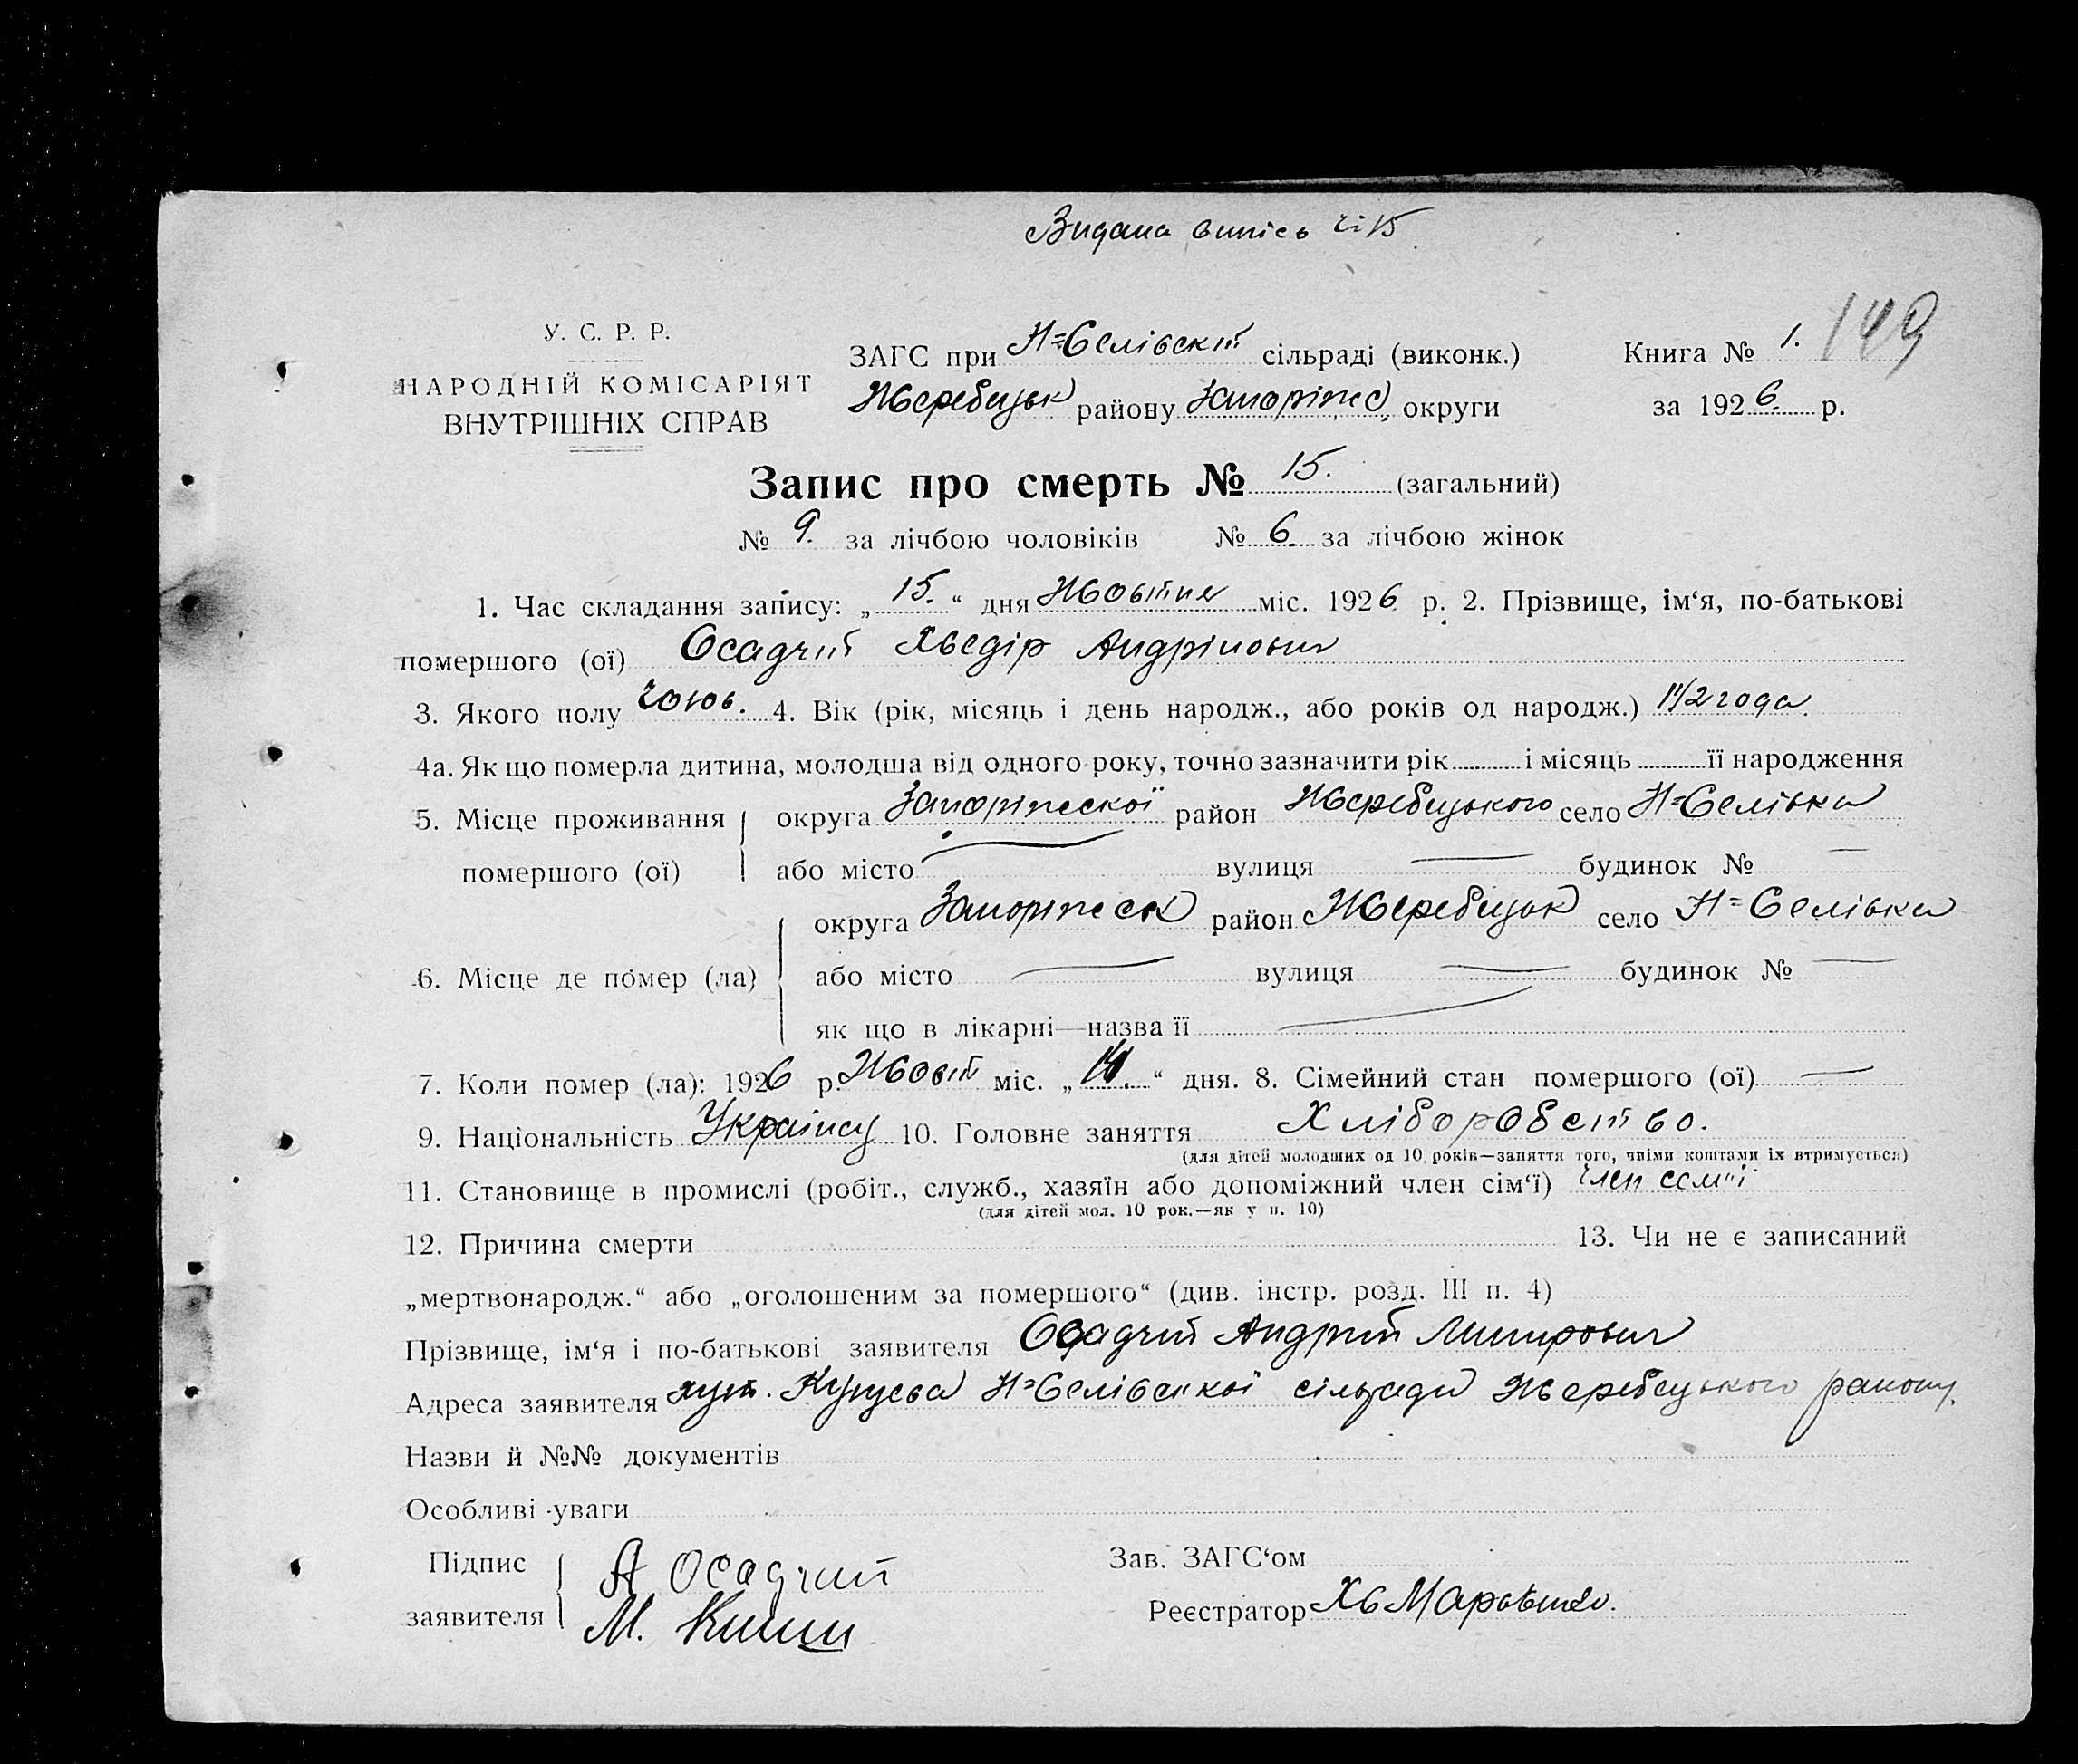 Видана випісь ч: 15
У. С. Р. Р.
НАРОДНІЙ КОМІСАРІЯТ
ВНУТРІШНІХ СПРАВ
ЗАГС при Н=Єлівскій сільраді (виконк.)
Жеребецьк району Запоріжс округи
Книга № 1. 149
за 1926 р.
Запис про смерть № 15. (загальний)
№ 9. за лічбою чоловіків № 6. за лічбою жінок
1. Час складання запису: „15.“ дня Жовтня міс. 1926 р. 2. Прізвище, ім‘я, по-батькові
помершого (ої) Осадчий Хведір Андрійович
3. Якого полу чолов. 4. Вік (рік, місяць і день народж., або років од народж.) 1 1/2 года.
4а. Як що померла дитина, молодша від одного року, точно зазначити рік і місяць її народження
5. Місце проживання округа Запоріжской район Жеребецького село Н=Єлівка
помершого (ої) або місто — вулиця — будинок № —
округа Запоріжеск район Жеребецьк село Н=Єлівка
6. Місце де помер (ла) або місто — вулиця — будинок № —
як що в лікарні—назва її —
7. Коли помер (ла): 1926 р. Жовт міс. „14.“ дня. 8. Сімейний стан помершого (ої) —
9. Національність Українец 10. Головне заняття Хліборобство.
(для дітей молодших од 10 років—заняття того, чиїми коштами їх втримується)
11. Становище в промислі (робіт., служб., хазяїн або допоміжний член сім‘ї) член семії
(для дітей мол. 10 рок.—як у п. 10)
12. Причина смерти 13. Чи не є записаний
„мертвонародж.“ або „оголошеним за помершого“ (див. інстр. розд. III п. 4)
Прізвище, ім‘я і по-батькові заявителя Осадчий Андрій
Адреса заявителя хут. Н=Єлівскої сільради Жеребецького району.
Назви й №№ документів
Особливі уваги
Підпис
заявителя
А Осадчий
М.
Зав. ЗАГС‘ом
Реєстратор Хв